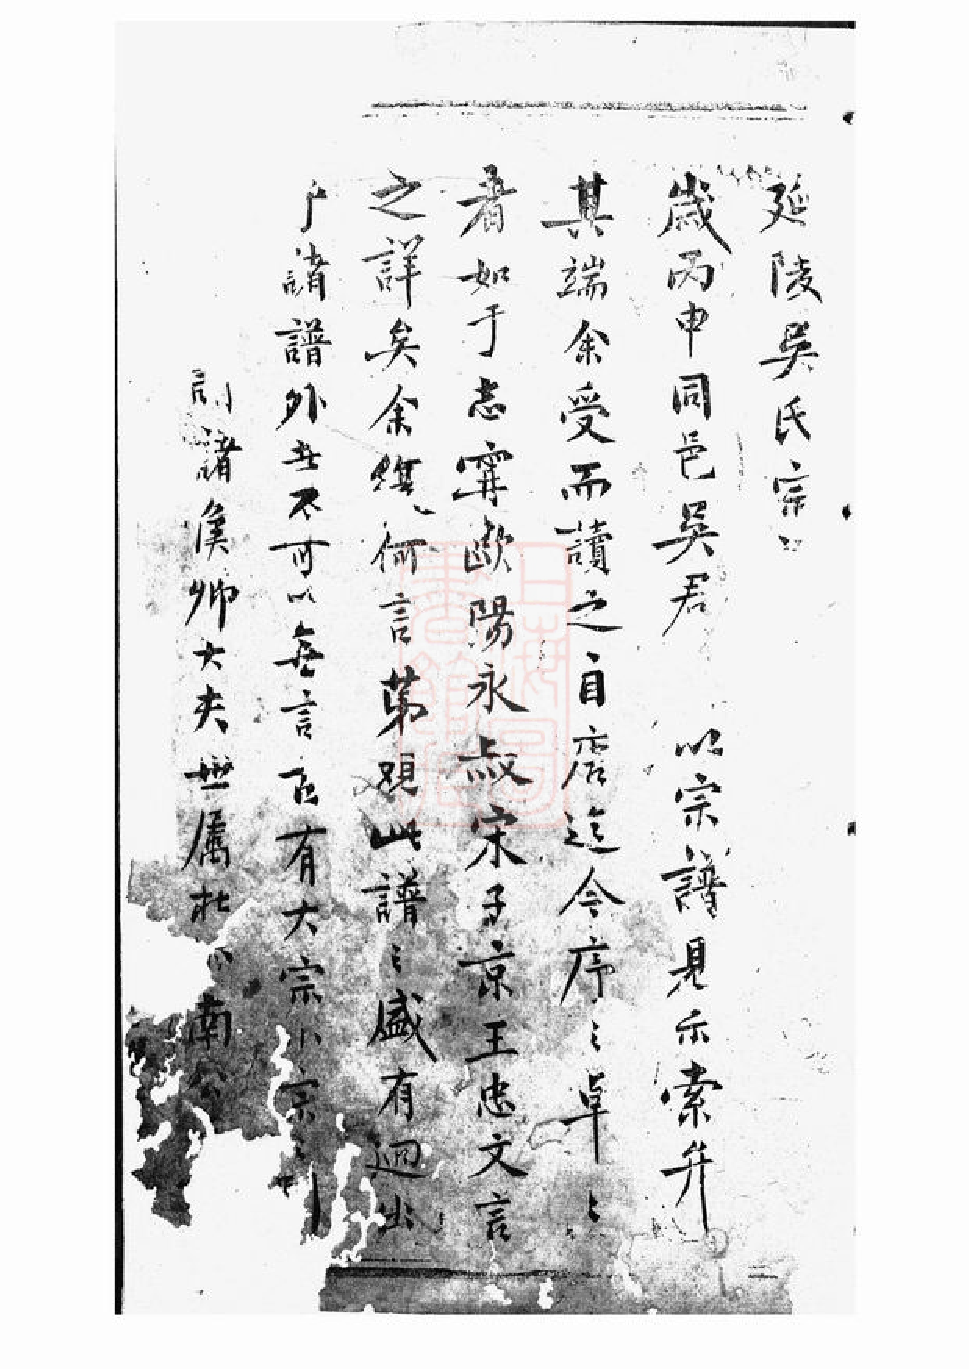 延陵吳氏宗
歲丙申同邑吳君 以宗譜見示索弁
其端余受而讀之自唐迄今序之卓之
者如于志寧歐陽永叔宋子京王忠文言
之詳矣余復何言第覌此譜之盛有迥出
諸譜外者不可以無言 有大宗小宗之別
諸侯卿大夫世屬 南公
上海圖書館藏